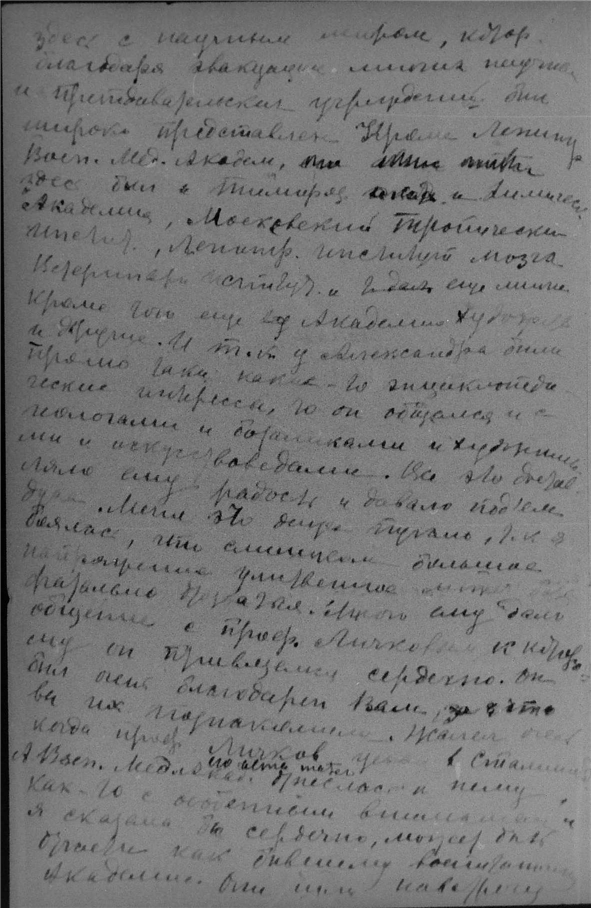 здесь с научным миром, котор.
благодаря эвакуации многих научн
и преподавательских учреждений был
широко представлен Кроме Ленингр
Воен. Мед. Академ,
здесь был и Тимиряз. и Химическ
Академия, Московский Тропически
институт., Ленингр. институт мозга
Ветеринарн институт. и еще многие
кроме того еще Академия Художеств
и другие. И т.к. у Александра были
прямо таки какие-то энциклопеди-
ческие интересы, то он общался и с
геологами и ботаниками и художника-
ми и искусствоведами. Все это достав-
ляло ему радость и давало подъем
духа. Меня это пугало, т.к я
боялась, что слишком большое
напряжение умственное может быть
фатально Много ему дало
общение с проф. Личковым к котор
ому он привязался сердечно. Он
был очень благодарен Вам, за что
вы их познакомили. Жалел очень
когда проф. Личков уехал в Сталинаб
А Воен. Мед. Акад. отнеслась к нему
как-то с особенным вниманием и
я сказала бы сердечно, может быть
отчасти как бывшему воспитаннику
Академии. Они шли навстречу